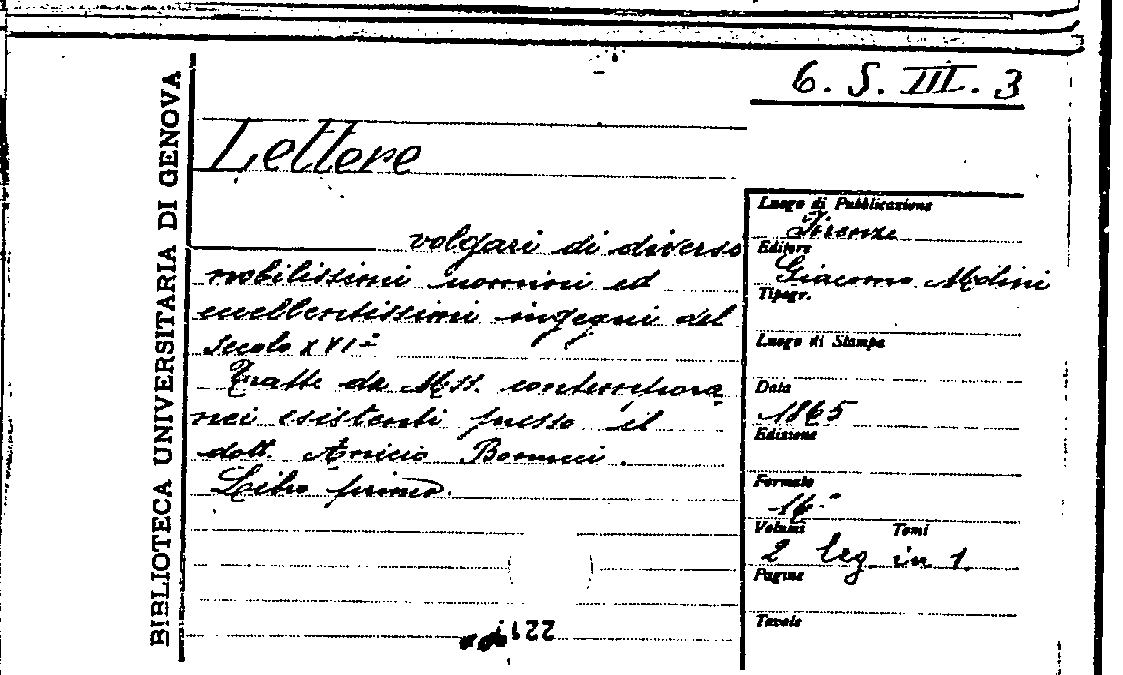 6. S. III. 3
BIBLIOTECA UNIVERSITARIA DI GENOVA
Lettere
volgari di diversi
nobilissimi uomini ed
eccellentissimi ingegni del
secolo XVI°
Tratte da Mss. contempora
nei esistenti presso il
dott. Anicio Bonucci.
Libro primo.
Luogo di Pubblicazione
Firenze
Editore
Giacomo Molini
Tipogr.
Luogo di Stampa
Data
1865
Edizione
Formato
16°
Volumi Tomi
2 leg in 1.
Pagine
Tavole